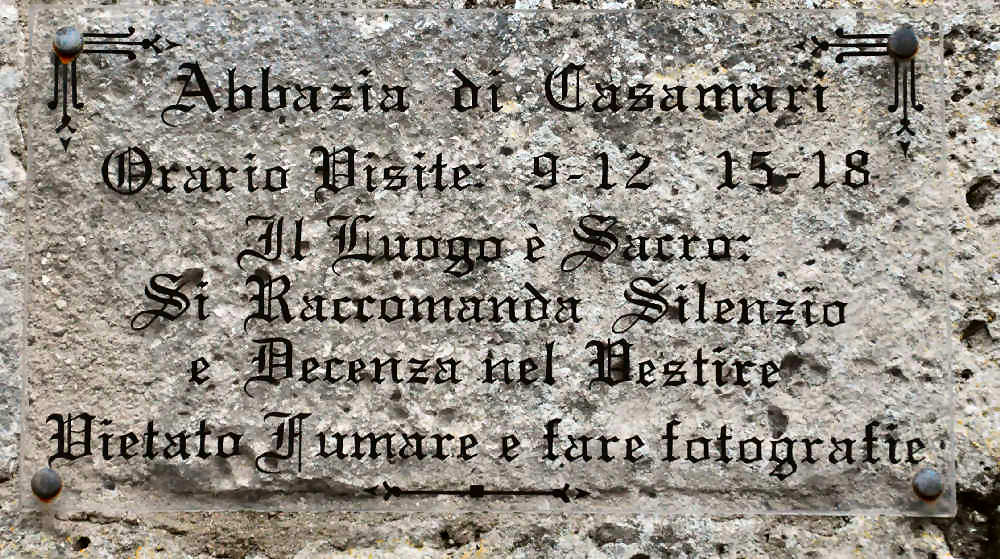 Abbazia di Casamari
Orario Visite: 9-12 15-18
Il Luogo è Sacro:
Si Raccomanda Silenzio
e Decenza nel Vestire
Vietato Fumare e fare fotografie